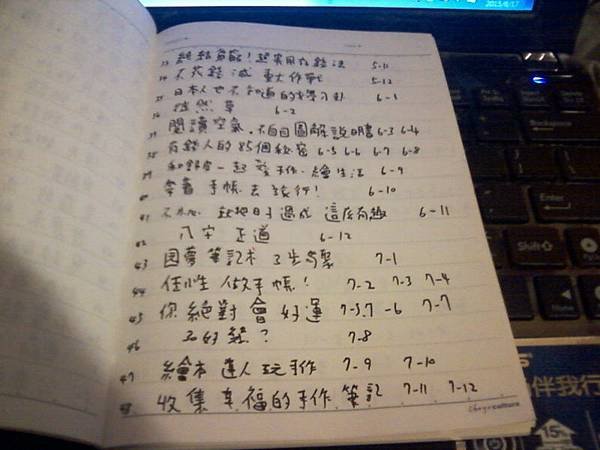 2013/6/17
33 終結負能!超實用存錢法 5-11
34 不花錢減重大作戰 5-12
35 日本人也不知道的 6-1
36 自然筆 6-2
37 閱讀空氣.不白目圖解說明書 6-3 6-4
38 有錢人的85個秘密 6-5 6-6 6-7 6-8
39 和 一起 手作.繪生活 6-9
40 拿著手帳去旅行! 6-10
41 不小心就把日子過成這麼有趣 6-11
42 八字正道 6-12
43 圓夢筆記本 3步驟 7-1
44 任性做手帳! 7-2 7-3 7-4
45 你絕對會好運 7-5,7-6 7-7
46 30好幾? 7-8
47 繪本達人玩手作 7-9 7-10
48 收集幸福的手作筆記 7-11 7-12
Backspace
Enter
Shift
伴我行
15%